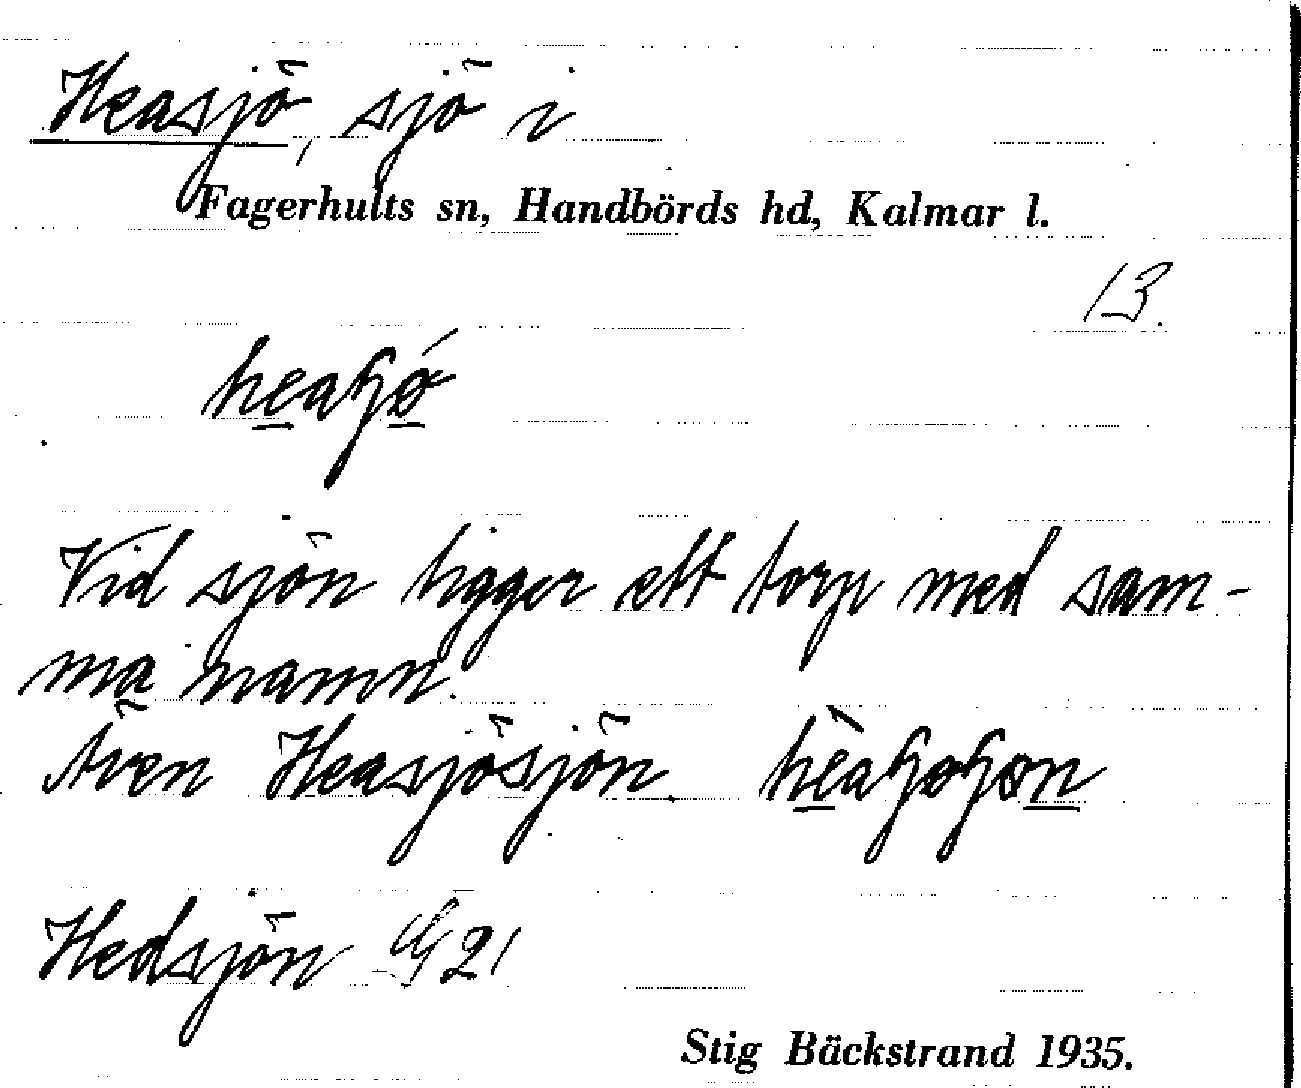 Heasjö, sjö i
Fagerhults sn, Handbörds hd, Kalmar l.
13.
Vid sjön ligger ett torp med sam-
ma namn.
Även Heasjösjön.
Hedsjön 21
Stig Bäckstrand 1935.